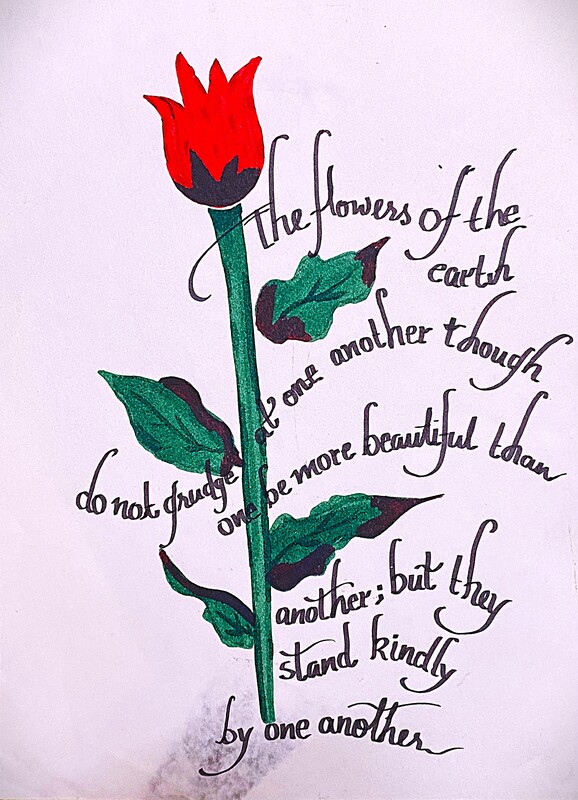 The flowers of the
earth
do not grudge at one another though
one be more beautiful than
another; but they
stand kindly
by one another